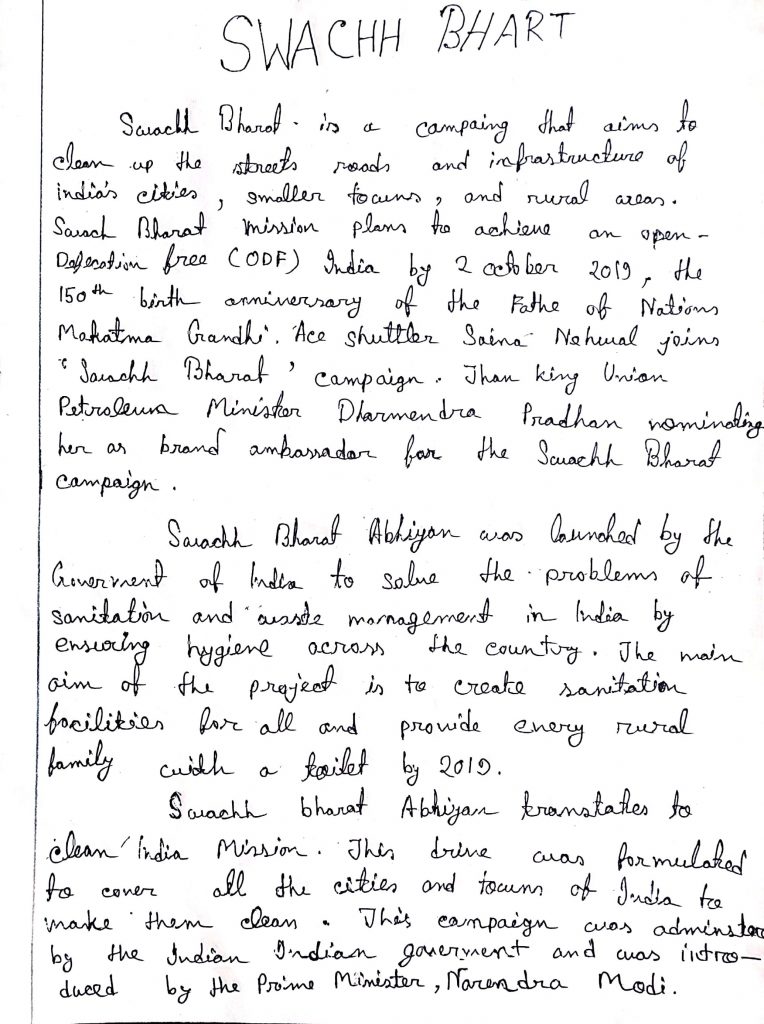 SWACHH BHART
Swachh Bharat is a campaing that aims to
clean up the streets roads and infrastructure of
india's cities, smaller towns, and rural areas.
Swach Bharat mission plans to achieve an open-
Defecation free (ODF) India by 2 october 2019, the
150th birth anniversary of the Fathe of Nations
Mahatma Gandhi. Ace shuttler Saina Nehwal joins
'Swachh Bharat' campaign. Than king Union
Petroleum Minister Dharmendra Pradhan nominating
her as brand ambassador for the Swachh Bharat
campaign.
Swachh Bharat Abhiyan was launched by the
Goverment of India to solve the problems of
sanitation and waste management in India by
ensuring hygiene across the country. The main
aim of the project is to create sanitation
facilities for all and provide every rural
family with a toilet by 2019.
Swachh bharat Abhiyan translates to
clean India Mission. This drive was formulated
to cover all the cities and towns of India to
make them clean. This campaign was adminster
by the Indian Indian goverment and was intro-
duced by the Prime Minister, Narendra Modi.